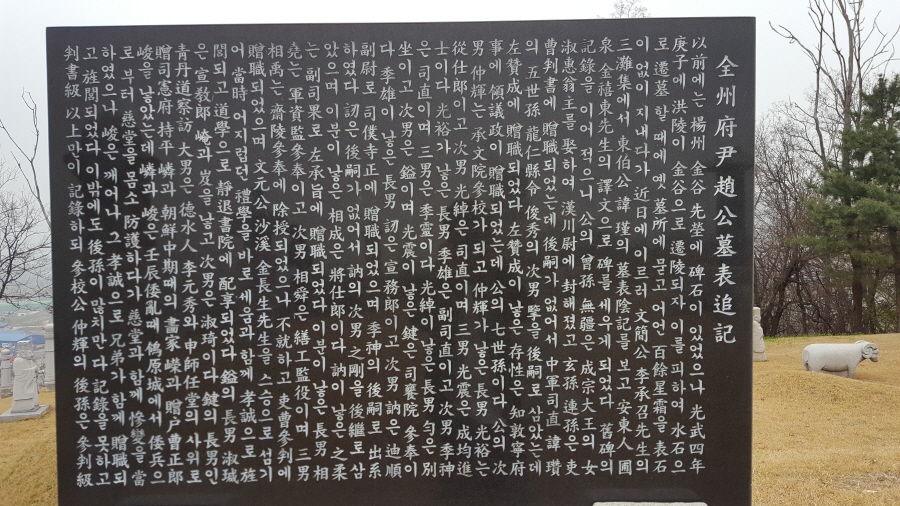 全州府尹趙公墓表追記
以前에는 楊州 金谷 先塋에 碑石이 있었으나 光武四年
庚子에 洪陵이 金谷으로 遷陵되자 이를 피하여 水石으
로 遷墓할 때에 옛 墓所에 묻고 어언 一百餘星霜을 表石
이 없이 지내다가 近日에 이르러 文簡公 李承召先生의
三灘集에서 東伯公 諱 瑾의 墓表陰記를 보고 安東人 圃
泉 金禧東先生의 譯文으로 碑를 세우게 되었다. 舊碑의
記錄을 이어 적으니 公의 曾孫 無疆은 成宗大王의 女
淑惠翁主를 娶하여 漢川尉에 封해졌고 玄孫 連孫은 吏
曹判書에 贈職되었는데 後嗣가 없어서 中軍司直 諱 瓚
의 五世孫 龍仁縣令 俊秀의 次男 擎을 後嗣로 삼았는데
左贊成에 贈職되었다. 左贊成이 낳은 存性은 知敦寧府
事에 領議政이 贈職되었는데 公의 七世孫이다. 公의 次
男 仲輝는 承文院參校가 되고 仲輝가 낳은 長男 光裕는
從仕郎이고 次男 光綽은 司直이며 三男 光震은 成均進
士이다. 光裕가 낳은 長男 季雄은 副司直이고 次男 季神
은 司直이며 三男은 季靈이다. 光綽이 낳은 長男 勻은 別
坐이고 次男은 鎰이며 光震이 낳은 鍵은 司饔院 參奉이
다. 季雄이 낳은 長男 訒은 宣務郎이고 次男 訥은 迪順
副尉로 司僕寺正에 贈職되었으며 季神의 後嗣로 出系
하였다. 訒은 後嗣가 없어서 訥의 次男 之剛을 後繼로 삼
았으며 이분이 낳은 相成은 將仕郎이다. 訥이 낳은 之柔
는 副司果로 左承旨에 贈職되었다. 이분이 낳은 長男 相
堯는 軍資監參奉이고 次男 相舜은 繕工監役이며 三男
相禹는 齋陵參奉에 除授되었으나 不就하고 吏曹參判에
贈職되었으며 文元公 沙溪 金長生先生을 스승으로 섬기
어 當時 어지럽던 禮學을 바로 세움과 함께 孝誠으로 旌
閭되고 道學으로 靜退書院에 配享되었다. 鎰의 長男 淑瑊
은 宣敎郎 崦과 岌을 낳고 次男은 淑琦이다. 鍵의 長男인
靑丹道察訪 大男은 德水人 李元秀와 申師任堂의 사위로
贈司憲府持平 嶙과 朝鮮中期의 畵家 嶸과 贈戶曹正郎
峻을 낳았는데 嶙과 峻은 壬辰倭亂때 鴒原城에서 倭兵으
로부터 慈堂을 몸소 防護하다가 慈堂과 함께 慘變을 當
하였으나 峻은 깨어나 그 孝誠으로 兄弟가 함께 贈職되
고 旌閭되었다. 이밖에도 後孫이 많지만 다 記錄을 못하고
判書級 以上만이 記錄하되 參校公 仲輝의 後孫은 參判級